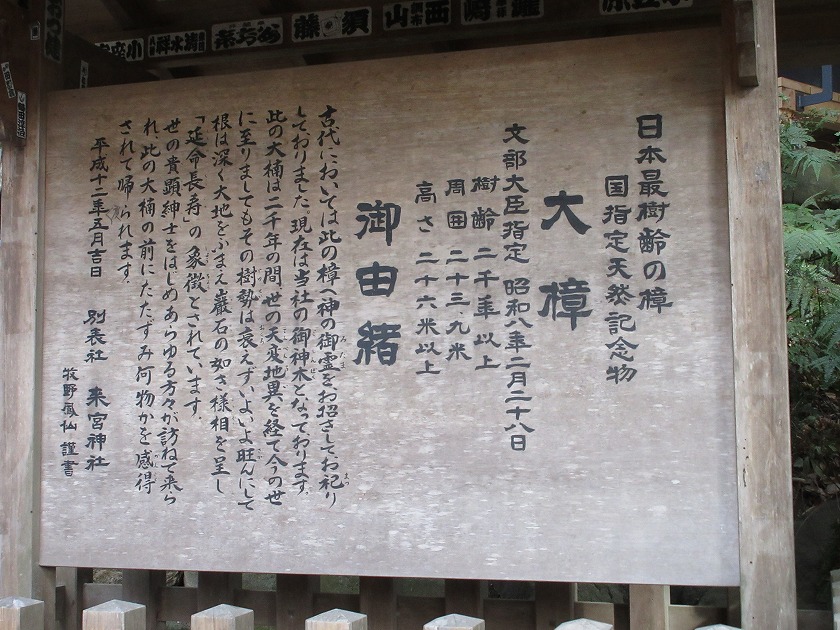 日本最樹齢の樟
国指定天然記念物
大樟
文部大臣指定 昭和八年二月二十八日
樹齢 二千年以上
周囲 二十三、九米
高さ 二十六米以上
御由緒
古代においては此の樟へ神の御霊をお招きしてお祀り
しておりました。現在は当社の御神木となっております。
此の大楠は二千年の間、世の天変地異を経て今の世
に至りましてもその樹勢は衰えずいよいよ旺んにして
根は深く大地をふまえ巌石の如き様相を呈し
「延命長寿」の象徴とされています。
世の貴顕紳士をはじめあらゆる方々が訪ねて来ら
れ、此の大楠の前にたたずみ何物かを感得
されて帰られます。
平成十二年五月吉日
別表社 来宮神社
牧野鳳仙 謹書
須藤
西山